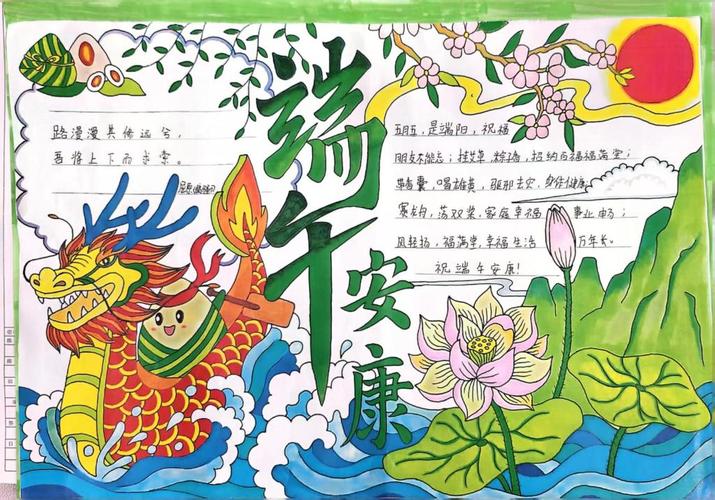 路漫漫其修远兮，
吾将上下而求索。
屈原
端午
安康
五月五，是端阳，祝福
朋友不能忘；挂艾草，粽子香，招纳百福福满堂；
带香囊，喝雄黄，驱邪去灾，身体健康
赛龙舟，荡双桨，家庭幸福 事业畅；
风轻扬，福满堂，幸福生活 万年长。
祝端午安康！